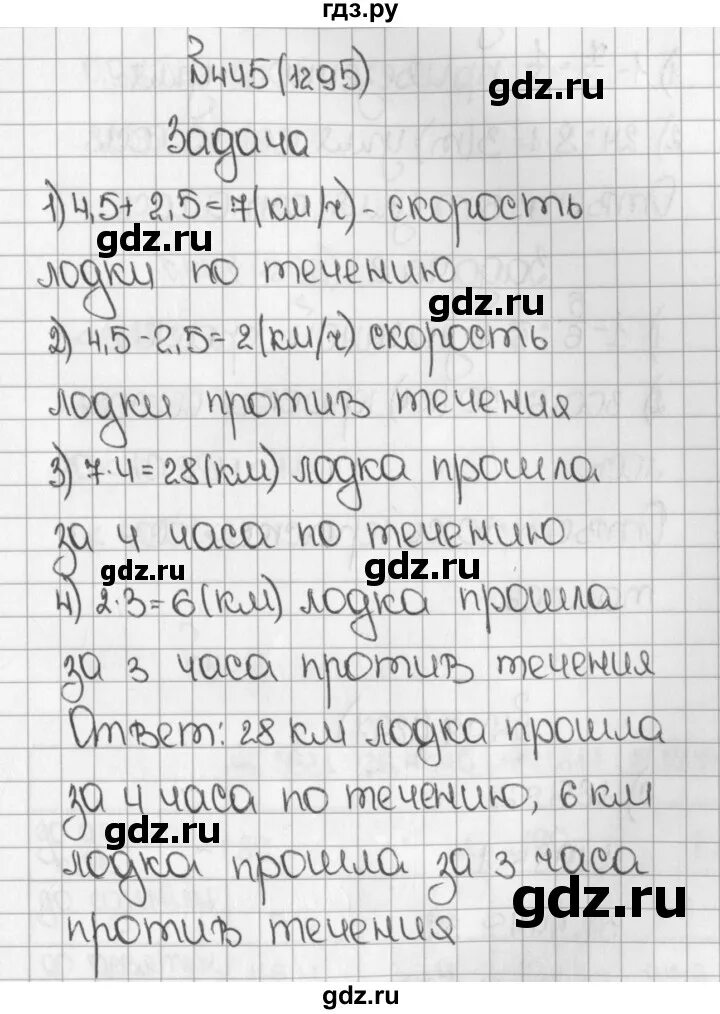 гдз.ру
№445(1295)
gdz.ru
Задача
1) 4,5+ 2,5=7(км/ч)- скорость
gdz.ru
лодки по течению
gdz.ru
2) 4,5-2,5=2(км/ч) скорость
лодки против течения
3) 7·4=28(км) лодка прошла
за 4 часа по течению
gdz.ru
gdz.ru
4) 2·3=6(км) лодка прошла
за 3 часа против течения
Ответ: 28 км лодка прошла
за 4 часа по течению, 6 км
gdz.ru
лодка прошла за 3 часа
gdz.ru
против течения
gdz.ru